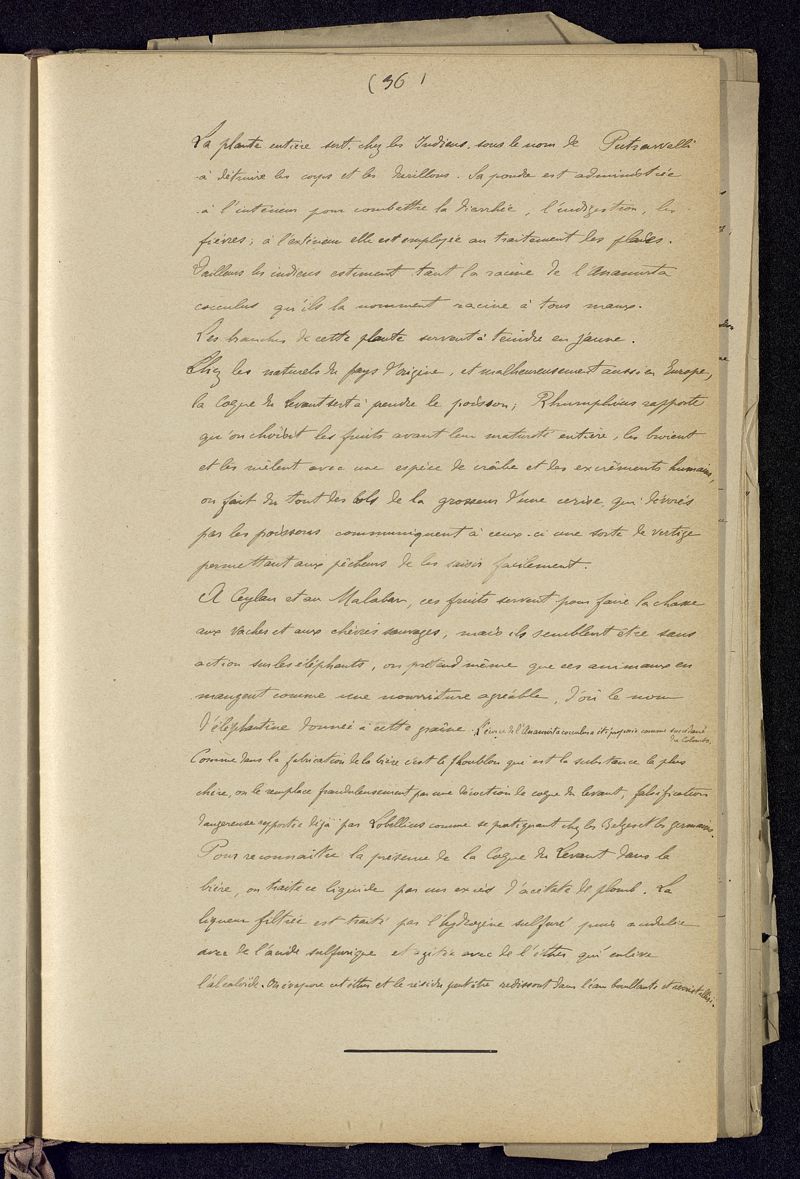 (36)
La plante entière sert, chez les Indiens, sous le nom de Putrawalli
à détruire les corps et les durillons. Sa poudre est administrée
à l'intérieur pour combattre la diarrhée, l'indigestion, les
fièvres; à l'extérieur elle est employée au traitement des plaies.
D'ailleurs les indiens estiment tant la racine de l'Anamirta
cocculus qu'ils la nomment racine à tous maux.
Les branches de cette plante servent à teindre en jaune.
Chez les naturels du pays d'origine, et malheureusement aussi en Europe,
la Coque du Levant sert à prendre le poisson; Rhumphius rapporte
qu'on choisit les fruits avant leur maturité entière, les broient
et les mêlent avec une espèce de crâbe et des excréments humains,
on fait du tout des bols de la grosseur d'une cerise qui dévorés
par les poissons communiquent à ceux-ci une sorte de vertige
permettant aux pêcheurs de les saisir facilement.
A Ceylan et au Malabar, ces fruits servent pour faire la chasse
aux vaches et aux chèvres sauvages, mais ils semblent etre sans
action sur les éléphants, on prétend même que ces animaux en
mangent comme une nourriture agréable, d'où le nom
d'éléphantine donnée à cette graîne. L'écorce de l'Anamirta cocculus a été proposée comme succédané
du Colombo.
Comme dans la fabrication de la bière c'est le houblon qui est la substance la plus
chère, on le remplace frauduleusement par une décoction de coque du levant, falsification
dangereuse rapportée déjà par Lobellius comme se pratiquant chez les Belges et les germains.
Pour reconnaître la présence de la Coque du Levant dans la
bière, on traite ce liquide par un excès d'acétate de plomb. La
liqueur filtrée est traité par l'hydrogène sulfuré puis acidulée
avec de l'acide sulfurique et agitée avec de l'éther qui enlève
l'alcaloïde. On évapore cet éther et le résidu peut être redissout dans l'eau bouillante et